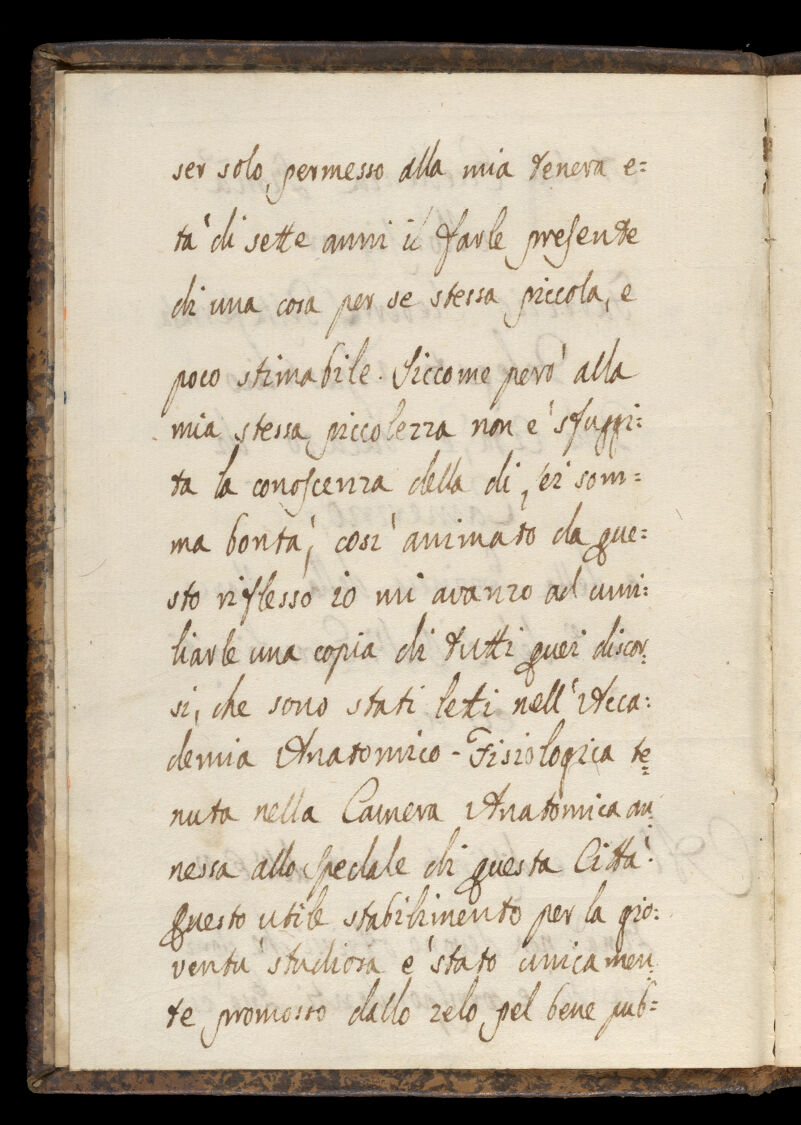 ser solo permesso alla mia tenera e=
tà di sette anni il farle presente
di una cosa per se stessa piccola, e
poco stimabile. Siccome però alla
mia stessa piccolezza non è sfuggi=
ta la conoscenza della di lei som=
ma bontà, così animato da que=
sto riflesso io mi avanzo ad umi=
liarle una copia di tutti quei discor=
si, che sono stati letti nell'Acca=
demia Anatomico-Fisiologica te=
nuta nella Camera Anatomica an=
nessa allo Spedale di questa Città.
Questo utile stabilimento per la gio=
ventù studiosa è stato unicamen=
te promosso dallo zelo pel bene pub=